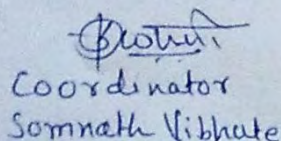 Coordinator
Somnath Vibhute